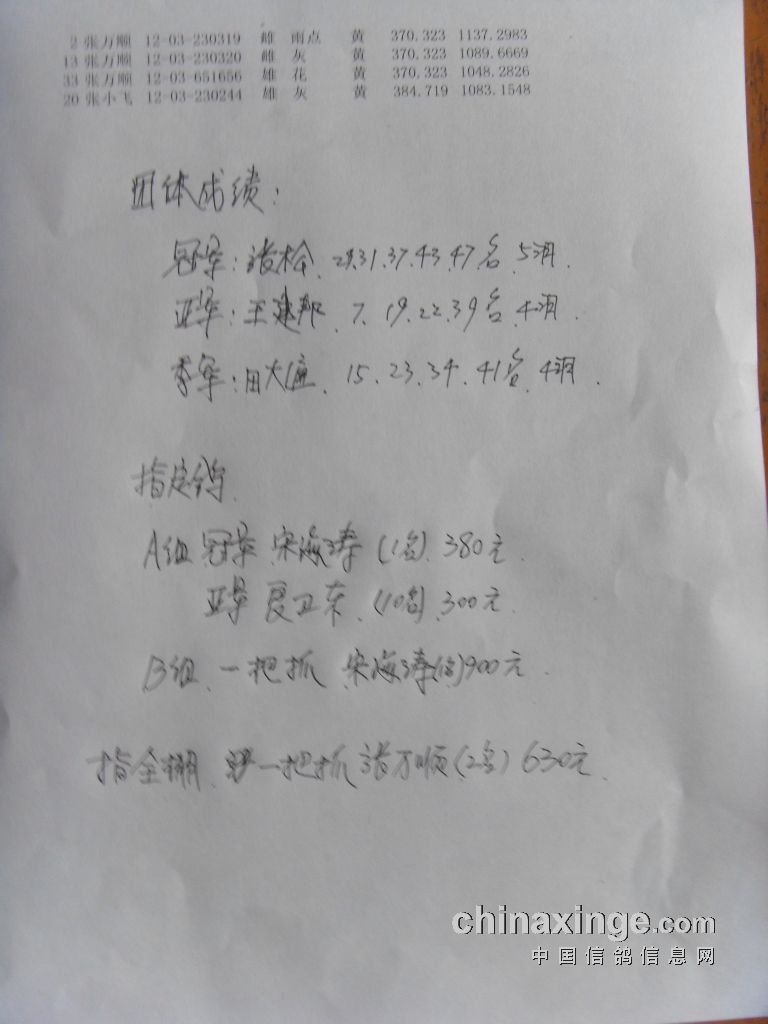 2 张万顺 12-03-230319 雌 雨点 黄 370.323 1137.2983
13 张万顺 12-03-230320 雌 灰 黄 370.323 1089.6669
33 张万顺 12-03-651656 雄 花 黄 370.323 1048.2826
20 张小飞 12-03-230244 雄 灰 黄 384.719 1083.1548
团体成绩:
冠军:张松、31.37.43.47名 5羽.
亚军:王建邦、7、19.22.39名.4羽.
季军:田大 15.23.34.41名.4羽.
指定鸽
A组 冠军 宋海涛 (1名) 380元.
亚军 卫东、(10名).300元.
B组、一把抓 宋海涛(1名)900元.
指全棚、一把抓 张万顺(2名) 630元.
chinaxinge.com
中国信鸽信息网